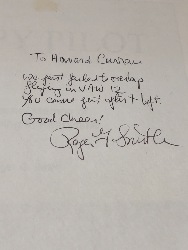 To Howard Curran
we just failed to overlap
flying in VTW 12
You came just after I left.
Good Cheers!
Roger H Smith